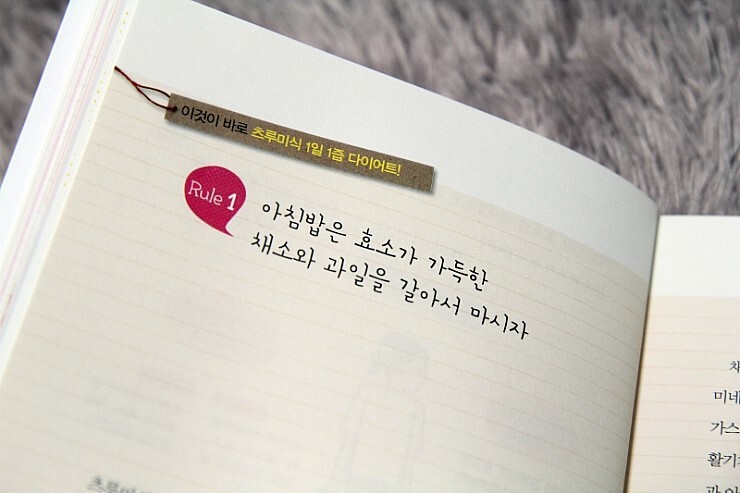 이것이 바로 츠루미식 1일 1즙 다이어트!
Rule 1
아침밥은 효소가 가득한
채소와 과일을 갈아서 마시자
츠루미
채
미네
가스
활기